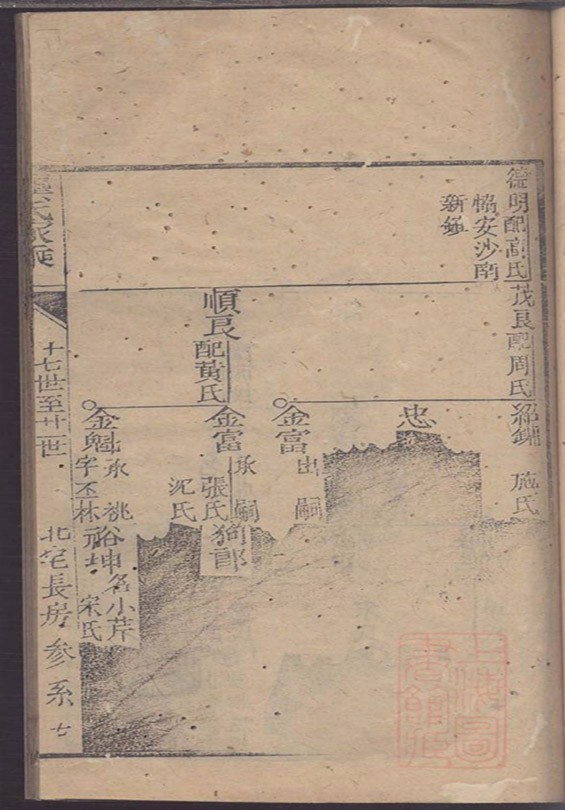 德明配高氏
恊安沙南
新
茂良配周氏
順良
配黃氏
紹鏞
施氏
忠
金富
出嗣
金富
承嗣
張氏
沈氏
狗郎
金魁
承祧
字丕林
裕坤名小芹
宋氏
十七世至廿一世
北宅長房參系
七
上海圖書館藏